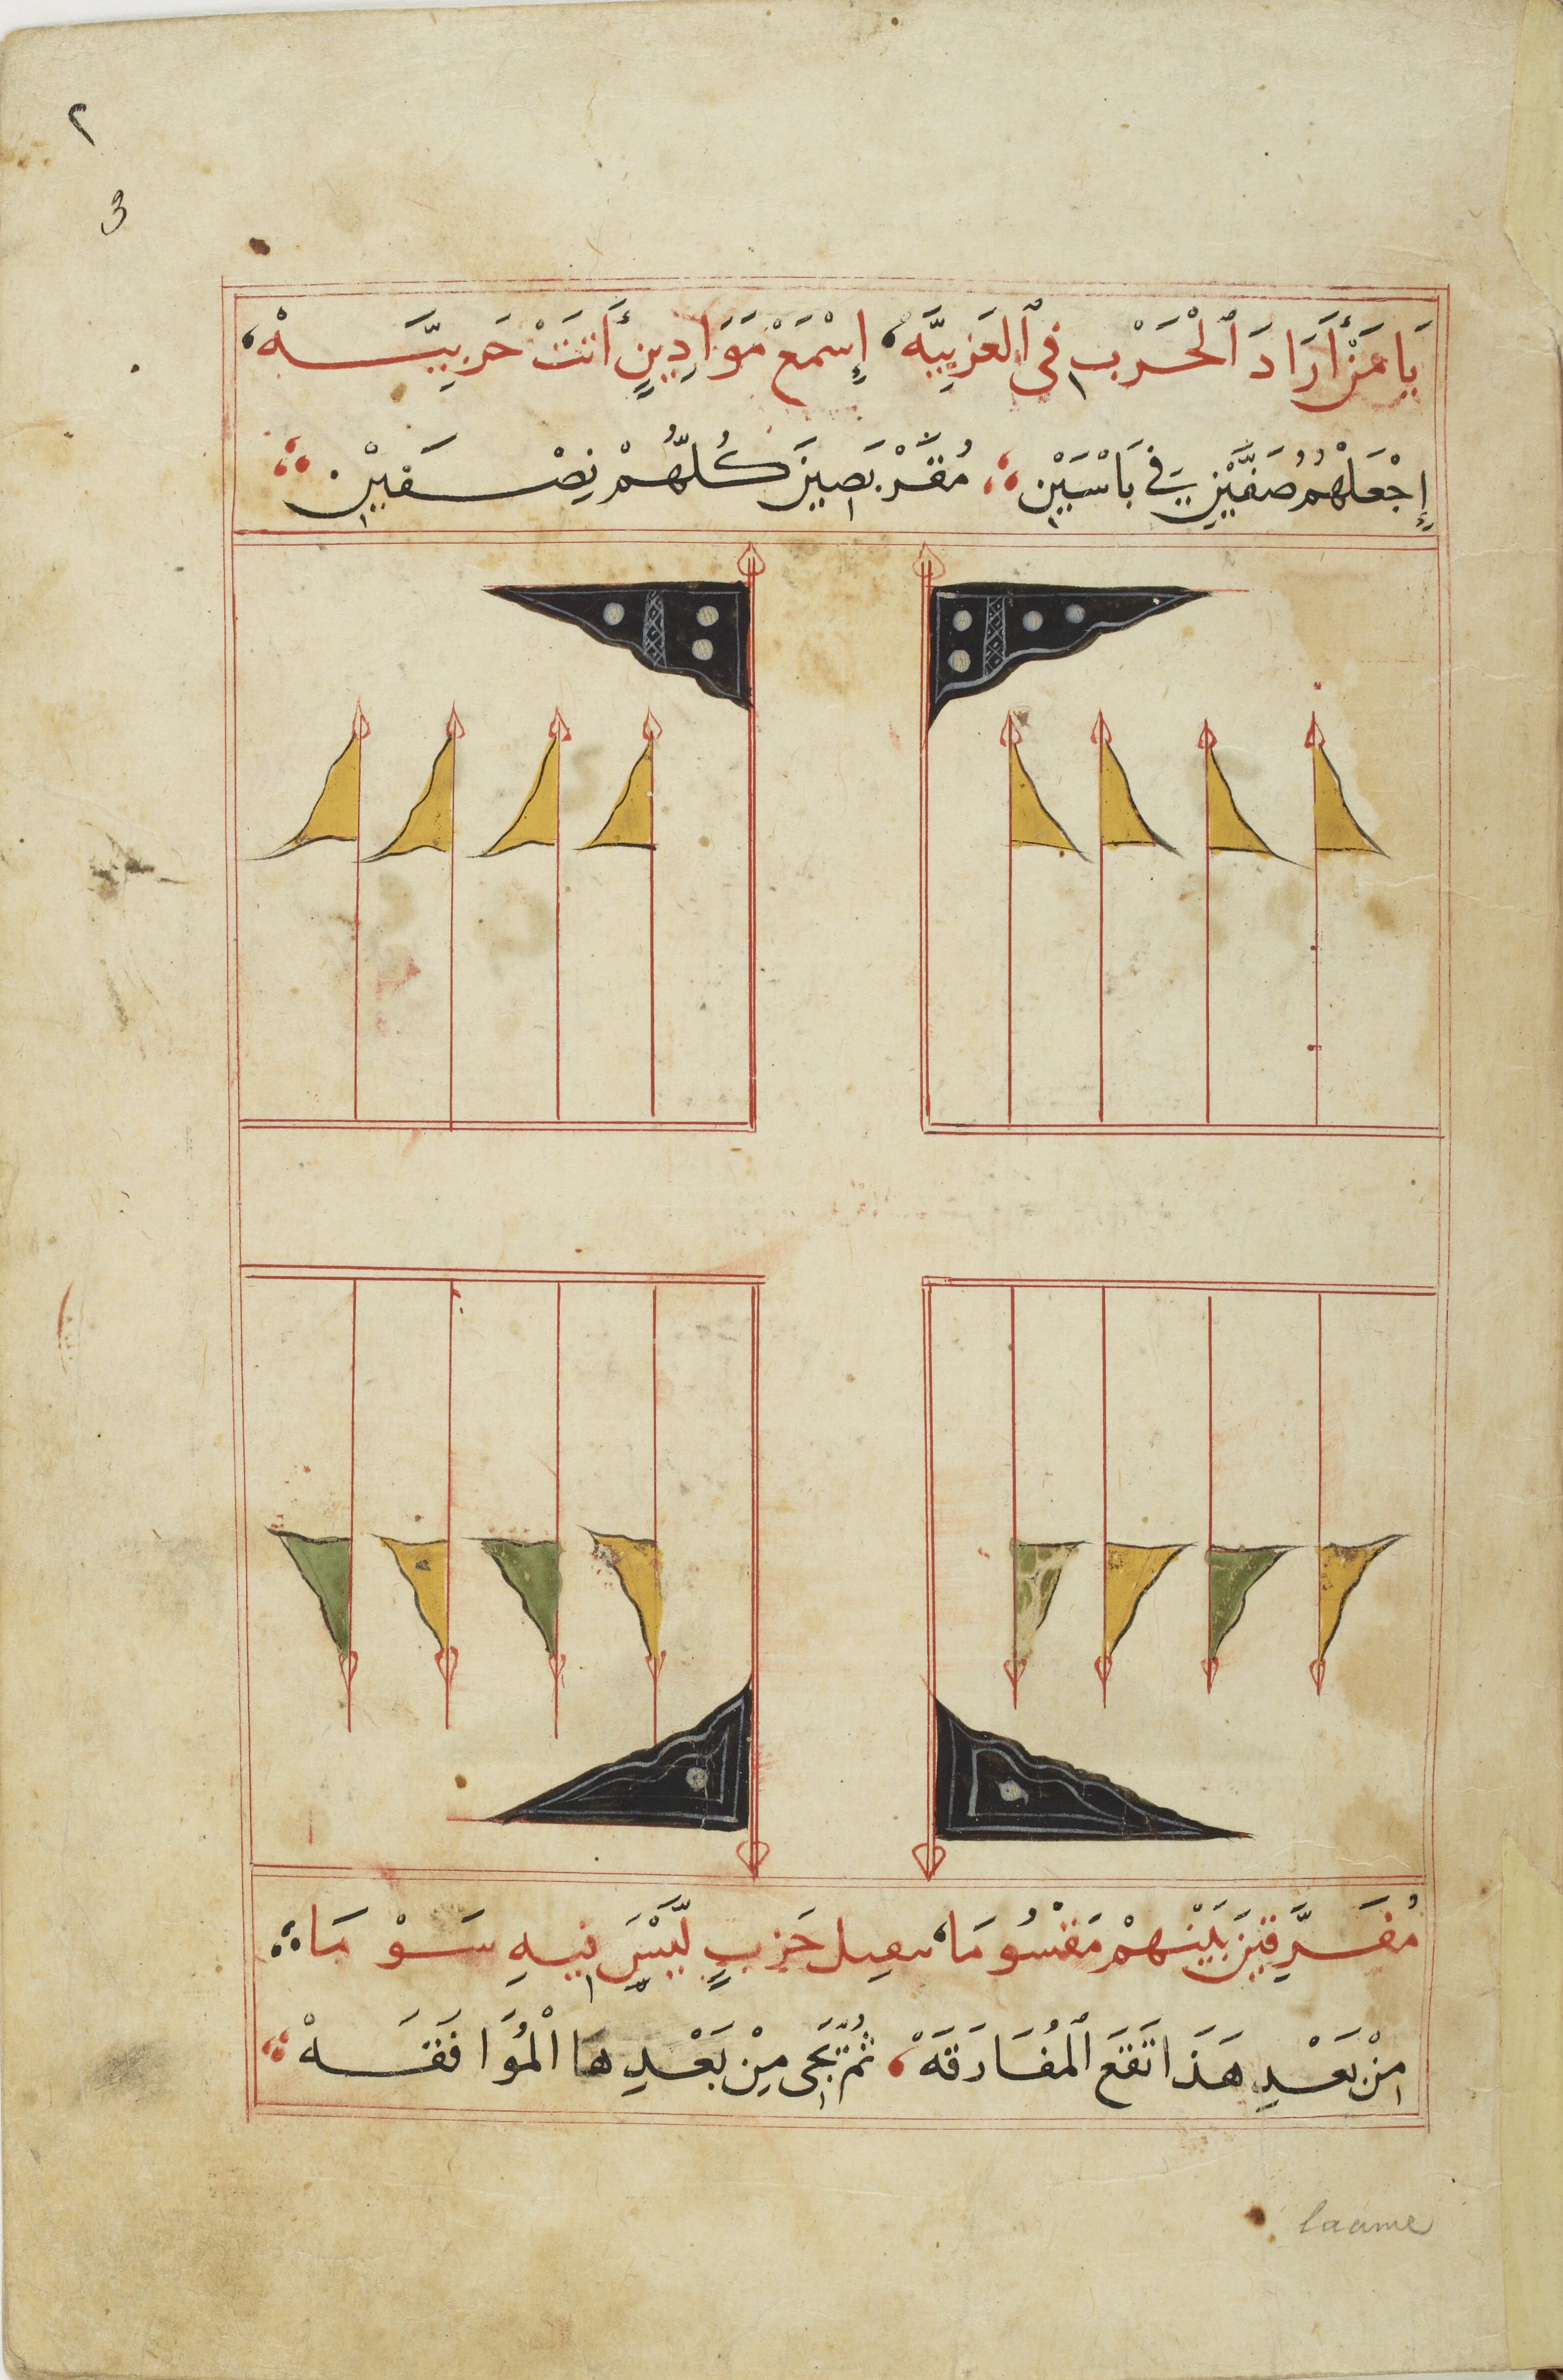 ٢
3
يَا مَنْ أَرَادَ ٱلْحَرْبِ فِي ٱلعَزِيبِيَّه، إِسْمَعْ مَوَادِيبٍ أَتَتْ حَرِبيَّــهْ،
إِجْعَلْهُمُ صَفَّيْنِ فِي بَاسَيْنِ، كُلّهُمْ نِصْفَيْنِ
مُفَرَّقِينَ بَيْنَهُمْ مَقْسُومَا، حَرْبٍ لَيْسَ فِيهِ سَوْمَا
مِنْ بَعْدِ هَذَا تَقَعَ ٱلْمُفَارَقَهْ، ثُمَّ تَجِى مِنْ بَعْدِهَا الْمُوَافَقَهْ
laame